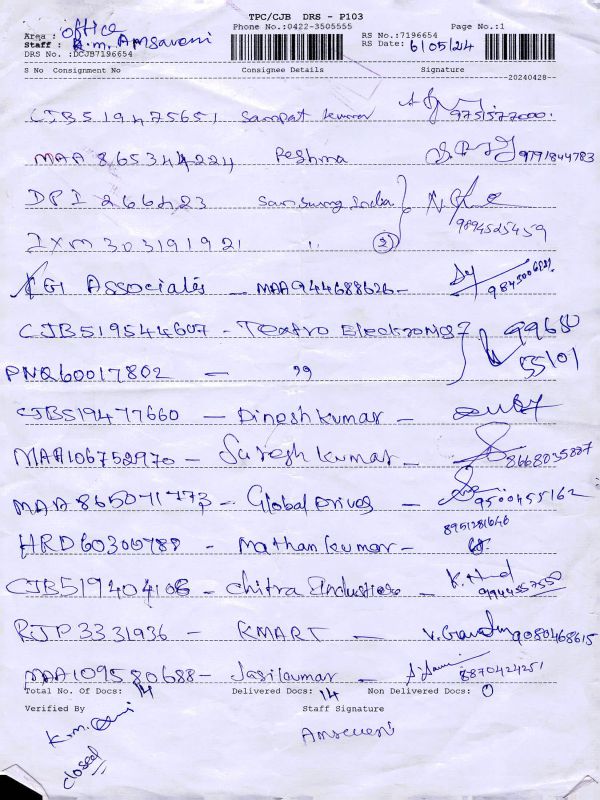 TPC/CJB DRS - P103
Phone No.:0422-3505555 Page No.:1
Area : office RS No.:7196654
Staff : K.m. Amsaveni RS Date: 6/05/24
DRS No. :DCJB7196654
S No Consignment No Consignee Details Signature
20240428
CJB519475651 Sampat kumar 9751577000
MAA 865344224 Reshma 9791844783
DPI 266423 Samsung India 9894525459
IXM 303191921 " 2
KGI Associates - MAA944688626-
CJB519544607 - Teatro Electronics 99650
PNQ60017802 - " 55101
CJB519477660 - Dineshkumar -
MAA106752970 - Suresh kumar - 8668035887
MAA865071773 - Global Drives - 9500455162
8951281646
HRD60300788 - Mathan kumar -
CJB519404106 - Chitra Industries - 9944557550
RJP3331936 - KMART - 9080468615
MAA109580688 - Jasikumar - 8870424251
Total No. Of Docs: 14 Delivered Docs: 14 Non Delivered Docs: 0
Verified By Staff Signature
K.m. Amsaveni
closed